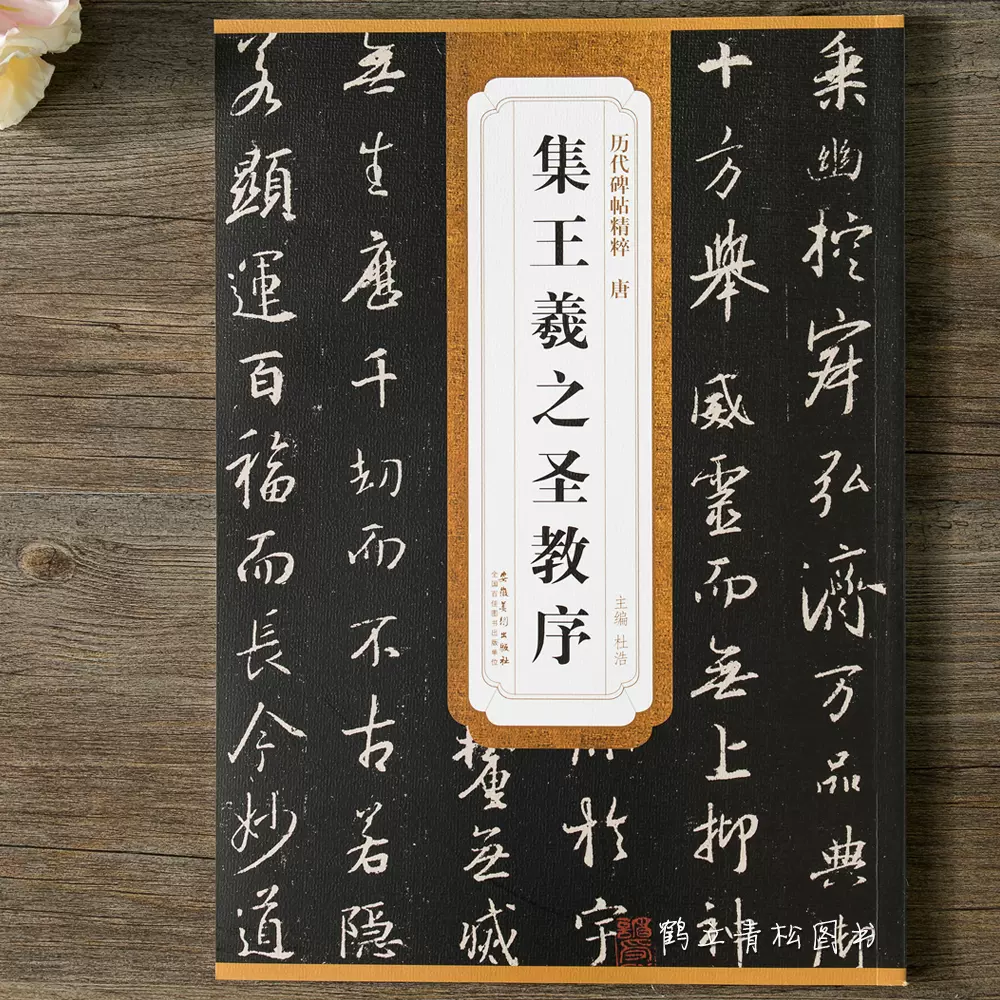 乘幽控寂弘濟万品典御
十方舉威靈而無上抑神
历代碑帖精粹 唐
主编 杜浩
集王羲之圣教序
安徽美术出版社
全国百佳图书出版单位
於宇
釐無滅
無生歷千劫而不古若隱
若顯運百福而長今妙道
鹤立清松图书